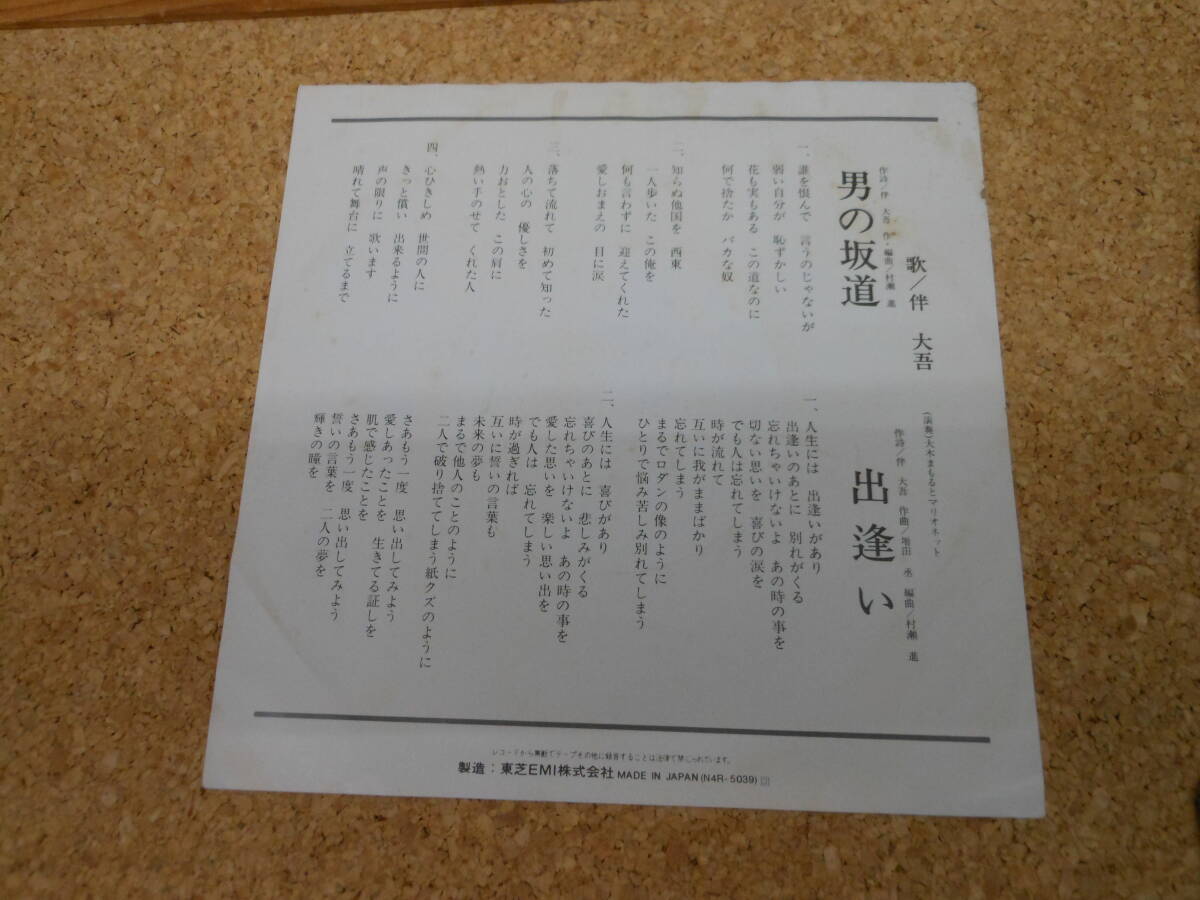 歌/伴 大吾
男の坂道
作詩/伴 大吾 作・編曲/村瀬 進
一、誰を恨んで 言うのじゃないが
弱い自分が 恥ずかしい
花も実もある この道なのに
何で捨てたか バカな奴
二、知らぬ他国を 西東
一人歩いた この俺を
何も言わずに 迎えてくれた
愛しおまえの 目に涙
三、落ちて流れて 初めて知った
人の心の 優しさを
力おとした この肩に
熱い手のせて くれた人
四、心ひきしめ 世間の人に
きっと償い 出来るように
声の限りに 歌います
晴れて舞台に 立てるまで
(演奏)大木まもるとマリオネット
作詩/伴 大吾 作曲/増田 丞 編曲/村瀬 進
出逢い
一、人生には 出逢いがあり
出逢いのあとに 別れがくる
忘れちゃいけないよ あの時の事を
切ない思いを 喜びの涙を
でも人は忘れてしまう
時が流れて
互いに我がままばかり
忘れてしまう
まるでロダンの像のように
ひとりで悩み苦しみ別れてしまう
二、人生には 喜びがあり
喜びのあとに 悲しみがくる
忘れちゃいけないよ あの時の事を
愛した思いを 楽しい思い出を
でも人は 忘れてしまう
時が過ぎれば
互いに誓いの言葉も
未来の夢も
まるで他人のことのように
二人で破り捨ててしまう紙クズのように
さあもう一度 思い出してみよう
愛しあったことを 生きてる証しを
肌で感じたことを
さあもう一度 思い出してみよう
誓いの言葉を 二人の夢を
輝きの瞳を
レコードから無断でテープその他に録音することは法律で禁じられています。
製造：東芝EMI株式会社 MADE IN JAPAN (N4R-5039)